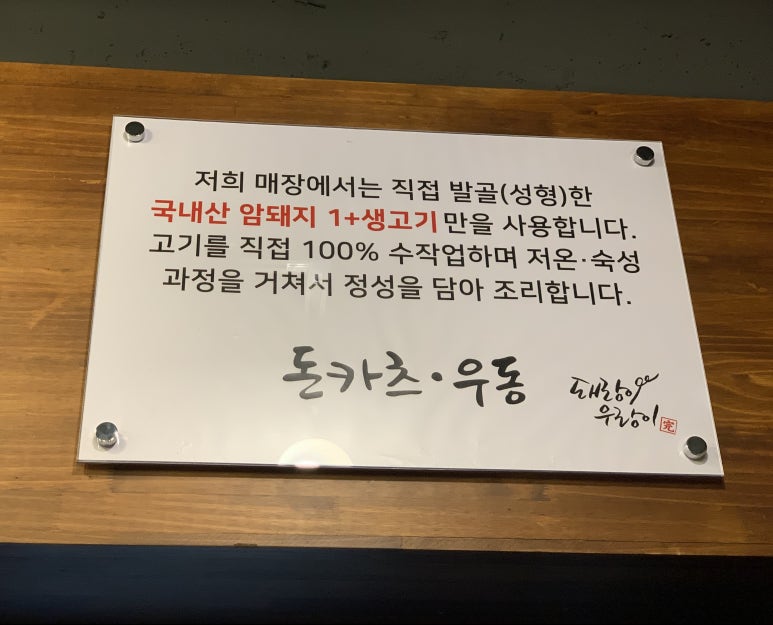 저희 매장에서는 직접 발골(성형)한
국내산 암돼지 1+생고기 만을 사용합니다.
고기를 직접 100% 수작업하며 저온·숙성
과정을 거쳐서 정성을 담아 조리합니다.
돈카츠·우동
돼랑이
우랑이
完